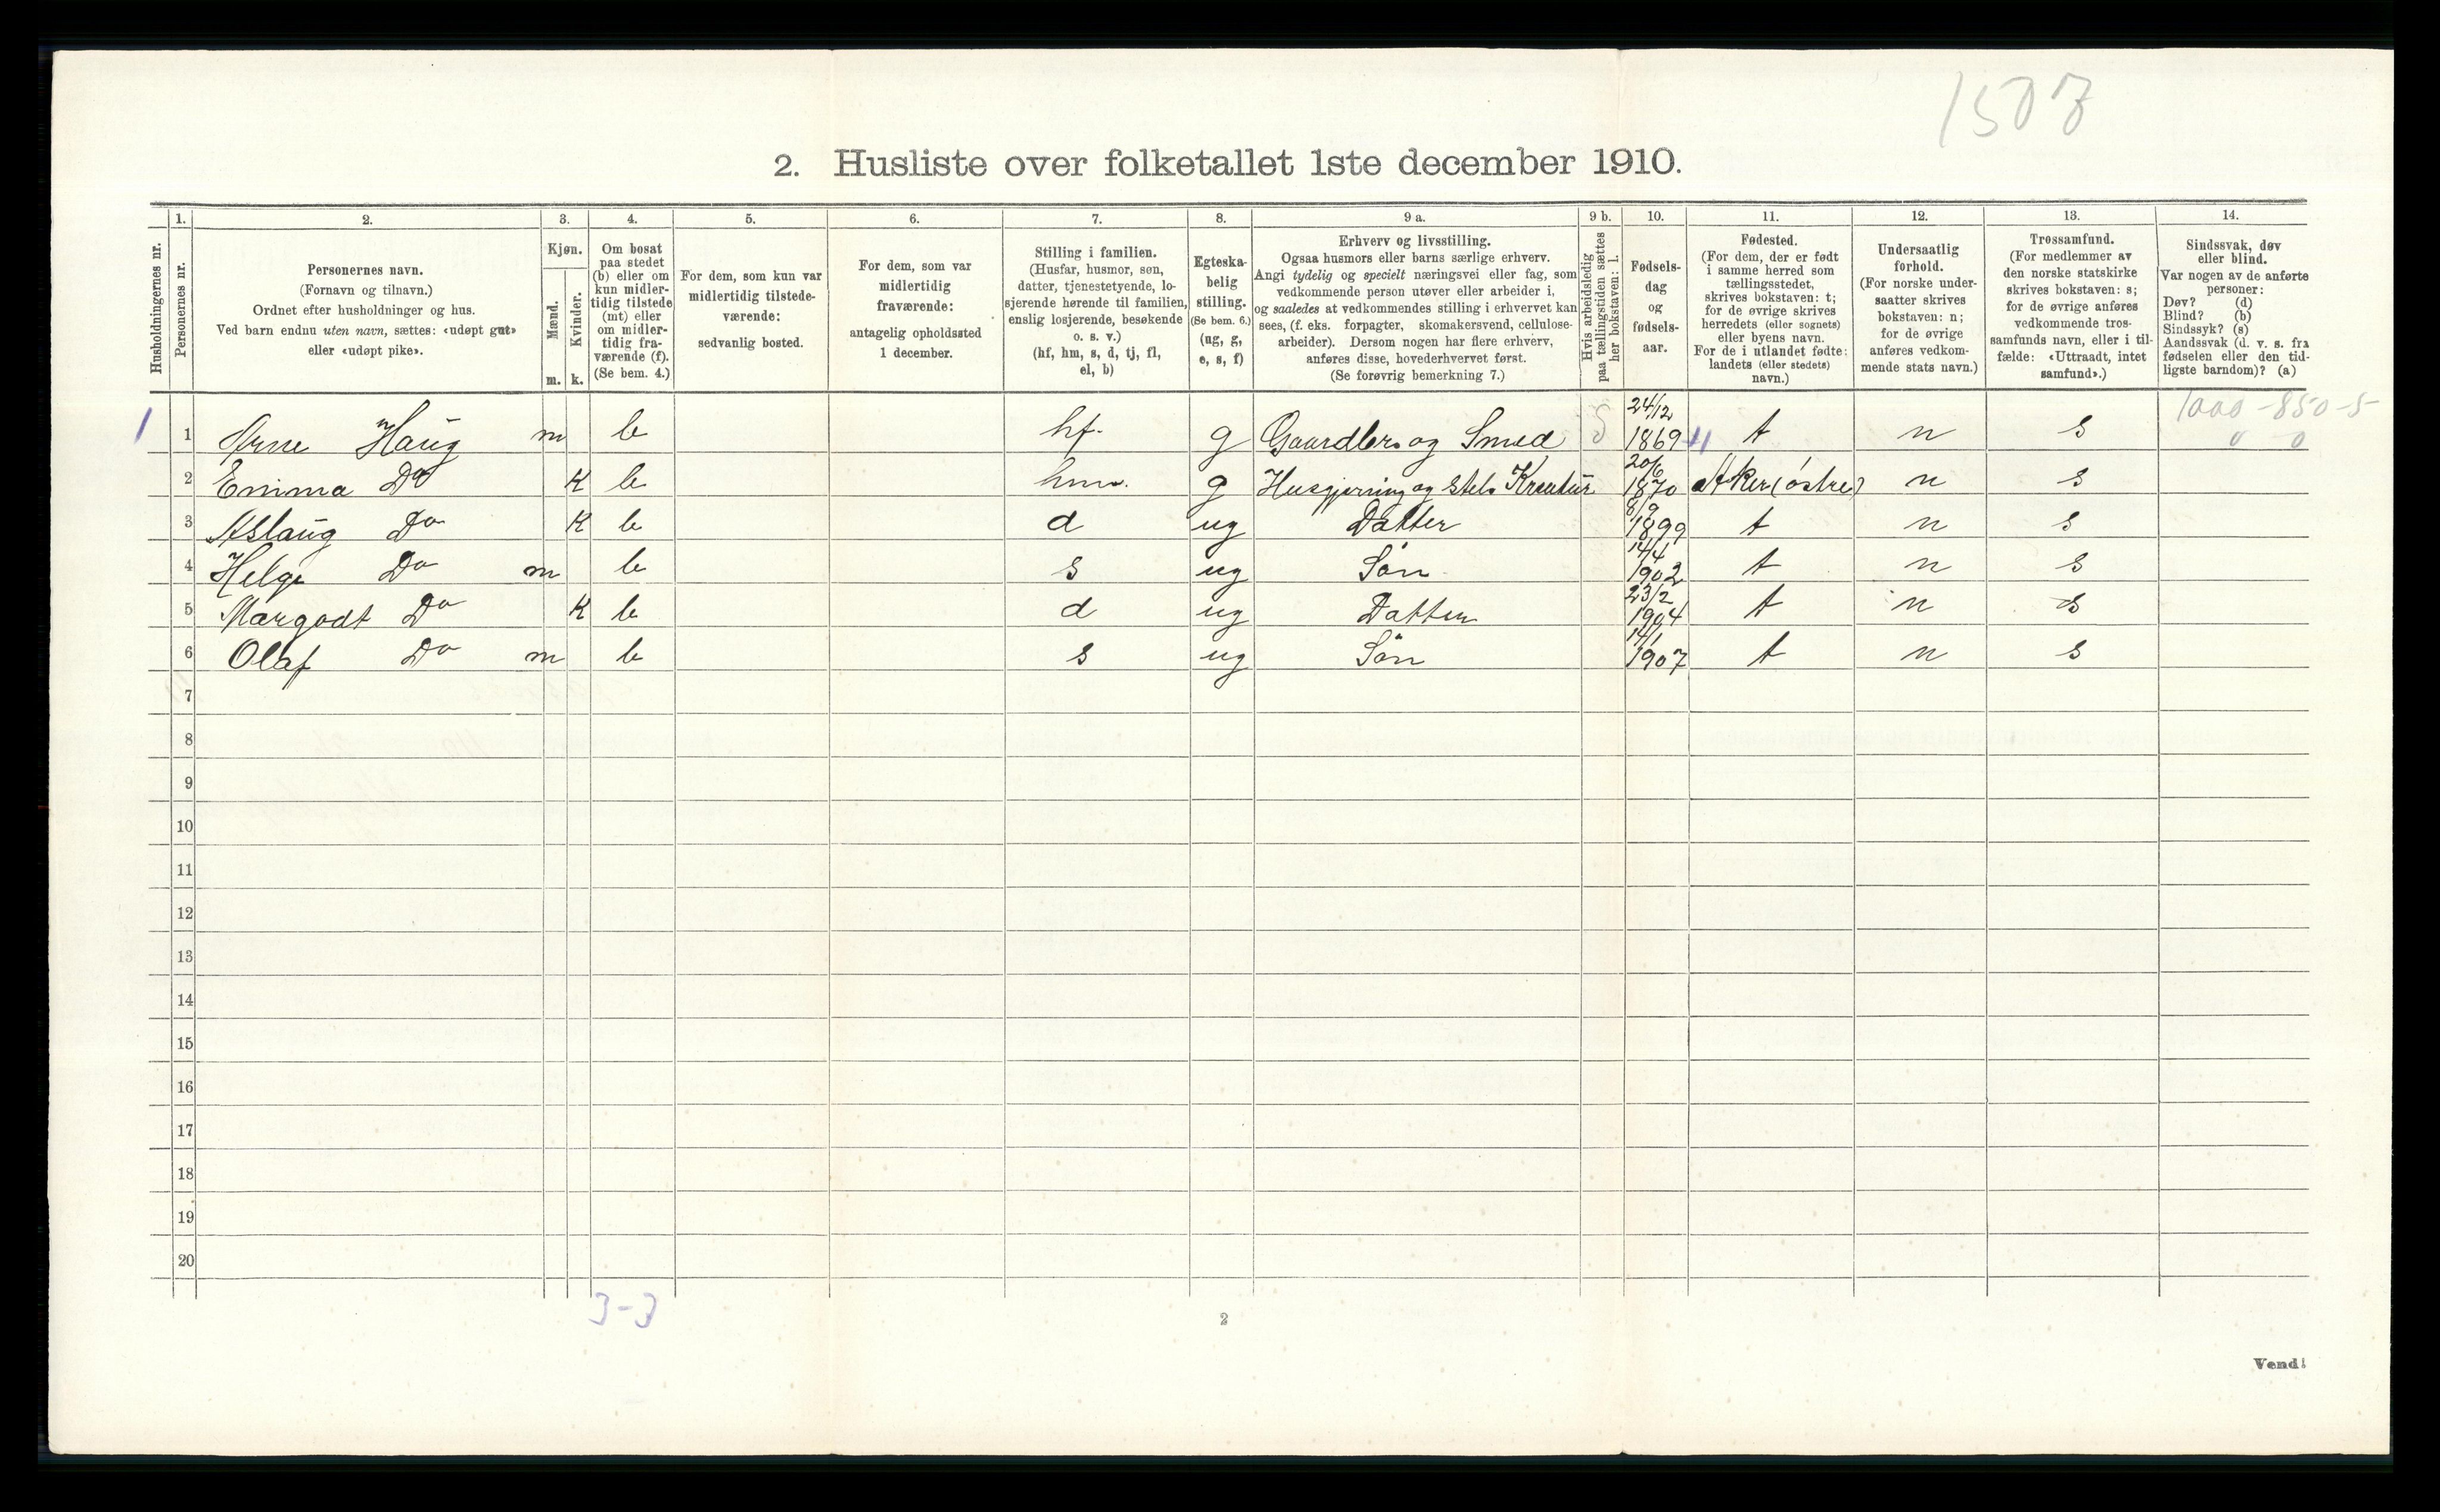 1507
2. Husliste over folketallet 1ste december 1910.
1. 2. 3. 4. 5. 6. 7. 8. 9 a. 9 b. 10. 11. 12. 13. 14.
Husholdningernes nr.
Personernes nr.
Personernes navn.
(Fornavn og tilnavn.)
Ordnet efter husholdninger og hus.
Ved barn endnu uten navn, sættes: «udøpt gut»
eller «udøpt pike».
Kjøn.
Mænd.
Kvinder.
m. k.
Om bosat
paa stedet
(b) eller om
kun midler-
tidig tilstede
(mt) eller
om midler-
tidig fra-
værende (f).
(Se bem. 4.)
For dem, som kun var
midlertidig tilstede-
værende:
sedvanlig bosted.
For dem, som var
midlertidig
fraværende:
antagelig opholdssted
1 december.
Stilling i familien.
(Husfar, husmor, søn,
datter, tjenestetyende, lo-
sjerende hørende til familien,
enslig losjerende, besøkende
o. s. v.)
(hf, hm, s, d, tj, fl,
el, b)
Egteska-
belig
stilling.
(Se bem. 6.)
(ug, g,
e, s, f)
Erhverv og livsstilling.
Ogsaa husmors eller barns særlige erhverv.
Angi tydelig og specielt næringsvei eller fag, som
vedkommende person utøver eller arbeider i,
og saaledes at vedkommendes stilling i erhvervet kan
sees, (f. eks. forpagter, skomakersvend, cellulose-
arbeider). Dersom nogen har flere erhverv,
anføres disse, hovederhvervet først.
(Se forøvrig bemerkning 7.)
Hvis arbeidsledig
paa tællingstiden sættes
her bokstaven: l.
Fødsels-
dag
og
fødsels-
aar.
Fødested.
(For dem, der er født
i samme herred som
tællingsstedet,
skrives bokstaven: t;
for de øvrige skrives
herredets (eller sognets)
eller byens navn.
For de i utlandet fødte:
landets (eller stedets)
navn.)
Undersaatlig
forhold.
(For norske under-
saatter skrives
bokstaven: n;
for de øvrige
anføres vedkom-
mende stats navn.)
Trossamfund.
(For medlemmer av
den norske statskirke
skrives bokstaven: s;
for de øvrige anføres
vedkommende tros-
samfunds navn, eller i til-
fælde: «Uttraadt, intet
samfund».)
Sindssvak, døv
eller blind.
Var nogen av de anførte
personer:
Døv? (d)
Blind? (b)
Sindssyk? (s)
Aandssvak (d. v. s. fra
fødselen eller den tid-
ligste barndom)? (a)
1000-850-5
0 0
1 1 Arne Haug m b hf. g Gaardbr. og Smed 24/12 1869 t n s
2 Emma Do K b hm. g Husgjerning og Stel. Kreatur 20/6 1870 Aker (østre) n s
3 Aslaug Do K b d ug Datter 8/9 1899 t n s
4 Helge Do m b s ug Søn 14/4 1902 t n s
5 Margodt Do K b d ug Datter 23/2 1904 t n s
6 Olaf Do m b s ug Søn 14/1 1907 t n s
7
8
9
10
11
12
13
14
15
16
17
18
19
20
3-3
2
Vend!